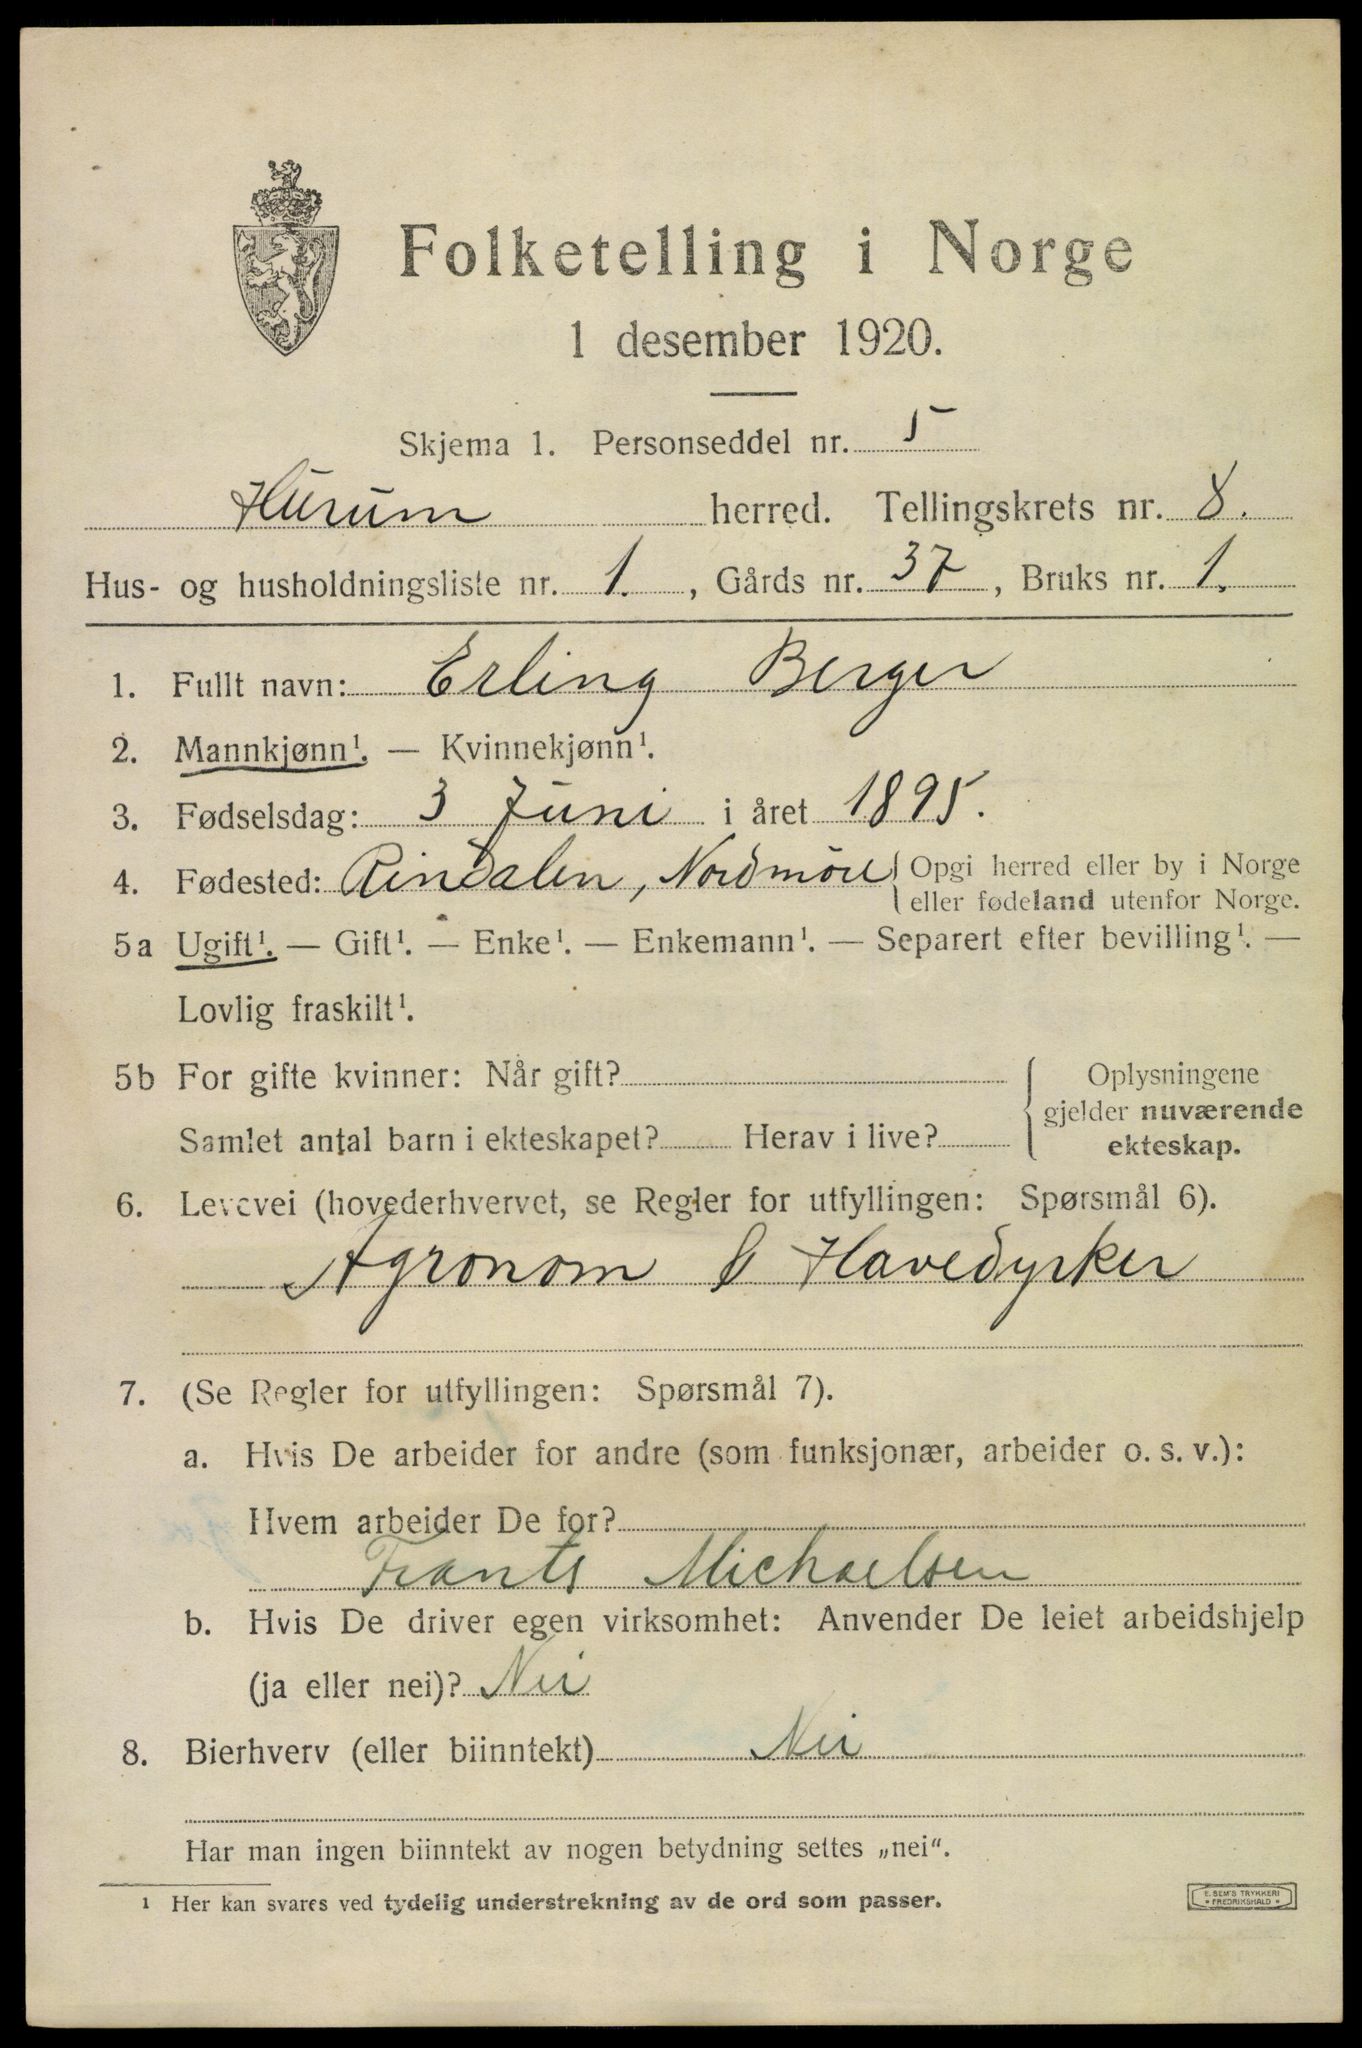 Folketelling i Norge
1 desember 1920.
Skjema 1. Personseddel nr. 5
Hurum herred. Tellingskrets nr. 8.
Hus- og husholdningsliste nr. 1., Gårds nr. 37, Bruks nr. 1.
1. Fullt navn: Erling Berger
2. Mannkjønn¹. — Kvinnekjønn¹.
3. Fødselsdag: 3 Juni i året 1895.
4. Fødested: Rindalen, Nordmöre { Opgi herred eller by i Norge
eller fødeland utenfor Norge.
5a Ugift¹. — Gift¹. — Enke¹. — Enkemann¹. — Separert efter bevilling¹. —
Lovlig fraskilt¹.
5b For gifte kvinner: Når gift? { Oplysningene
gjelder nuværende
Samlet antal barn i ekteskapet? Herav i live? ekteskap.
6. Levevei (hovederhvervet, se Regler for utfyllingen: Spørsmål 6).
Agronom & Havedyrker
7. (Se Regler for utfyllingen: Spørsmål 7).
a. Hvis De arbeider for andre (som funksjonær, arbeider o. s. v.):
Hvem arbeider De for?
Frants Michaelsen
b. Hvis De driver egen virksomhet: Anvender De leiet arbeidshjelp
(ja eller nei)? Nei
8. Bierhverv (eller biinntekt) Nei
Har man ingen biinntekt av nogen betydning settes „nei“.
¹ Her kan svares ved tydelig understrekning av de ord som passer.
E. SEM'S TRYKKERI
• FREDRIKSHALD •